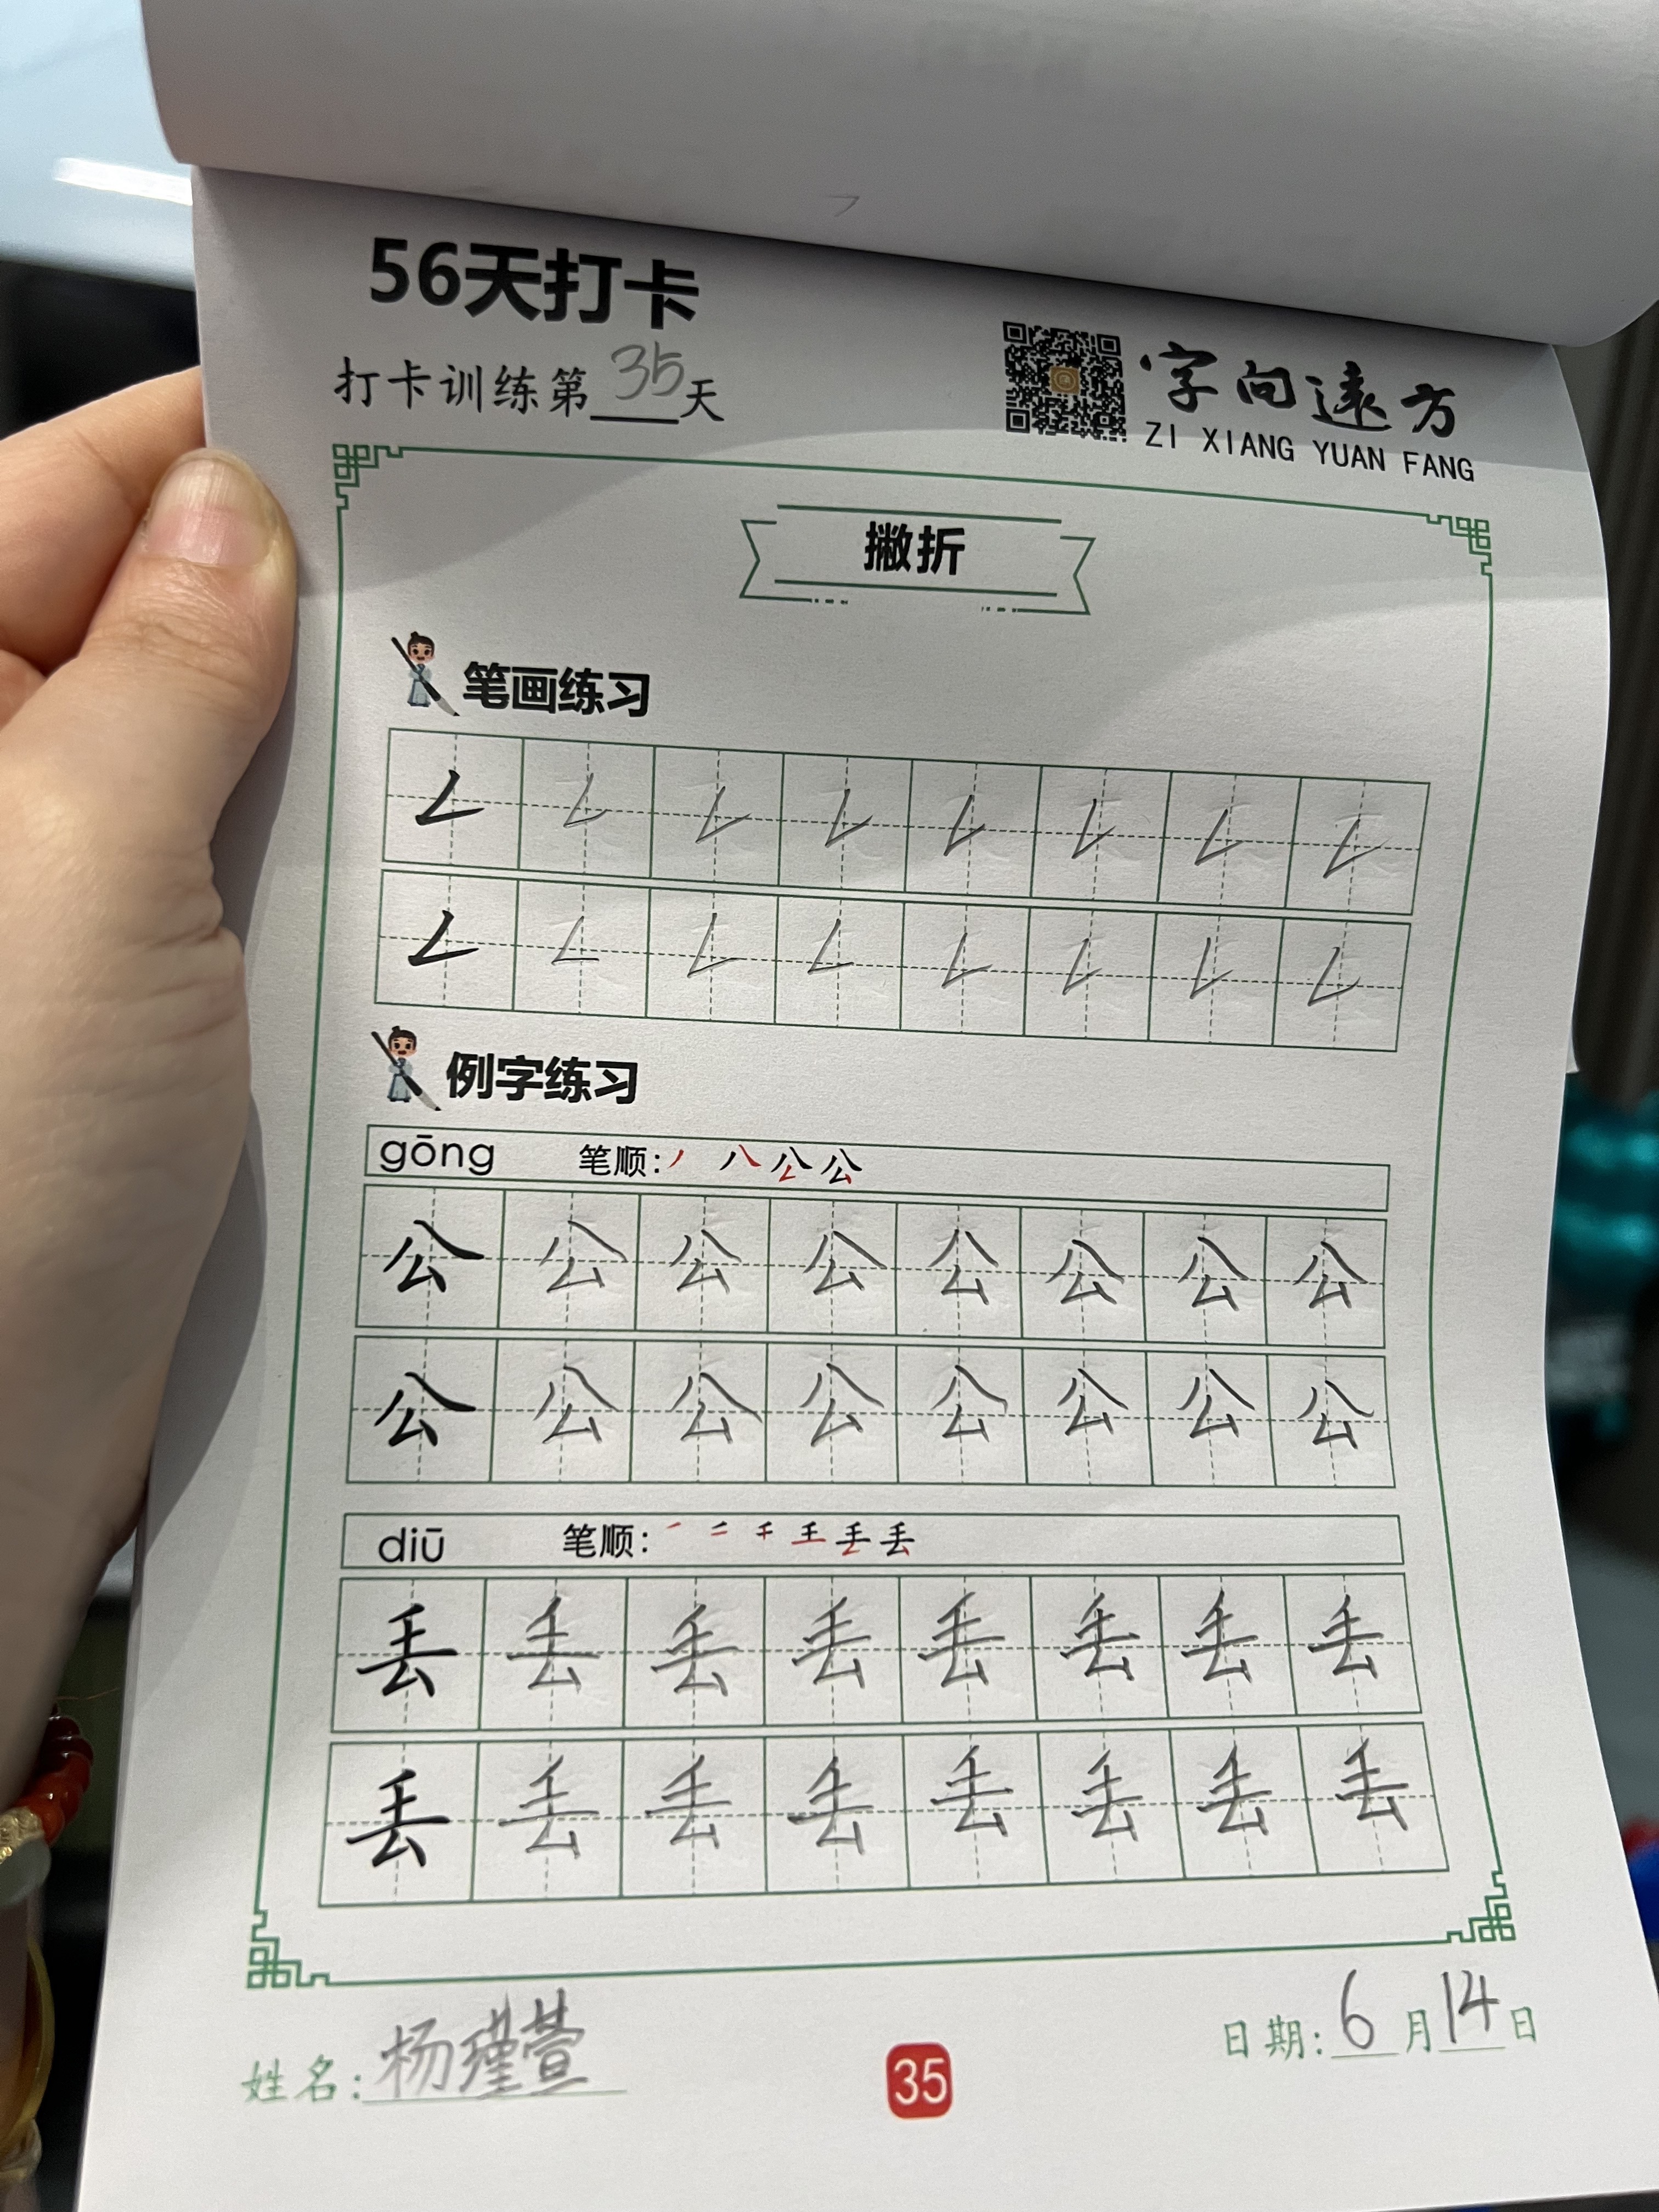 56天打卡
打卡训练第35天
字向遠方
ZI XIANG YUAN FANG
撇折
笔画练习
例字练习
gōng 笔顺:丿 八 公 公
公 公 公 公 公 公 公 公
公 公 公 公 公 公 公 公
diū 笔顺: 一 二 千 王 丢 丢
丢 丢 丢 丢 丢 丢 丢 丢
丢 丢 丢 丢 丢 丢 丢 丢
姓名:杨瑾萱
35
日期:6月14日